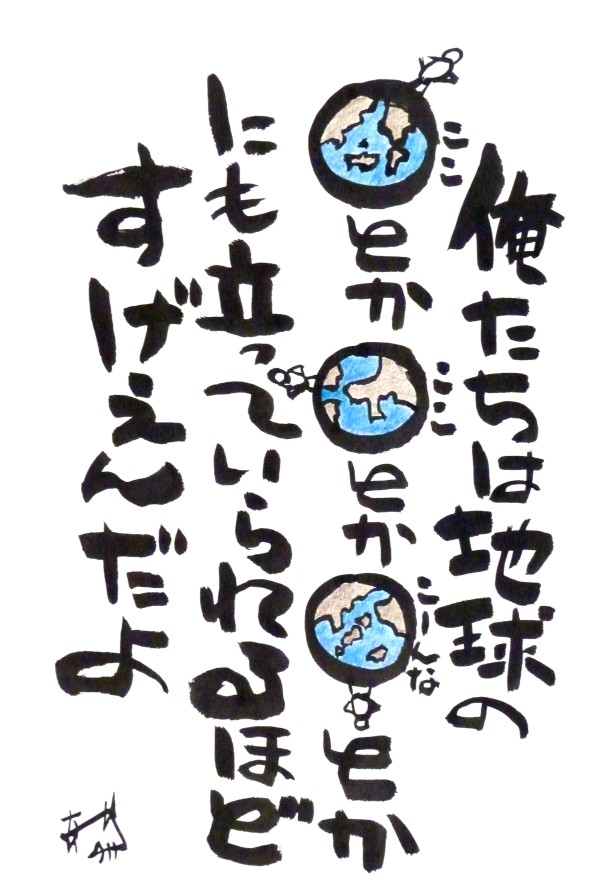 俺たちは地球の
ここ
とか
ここ
とか
こーんな
とか
にも立っていられるほど
すげえんだよ